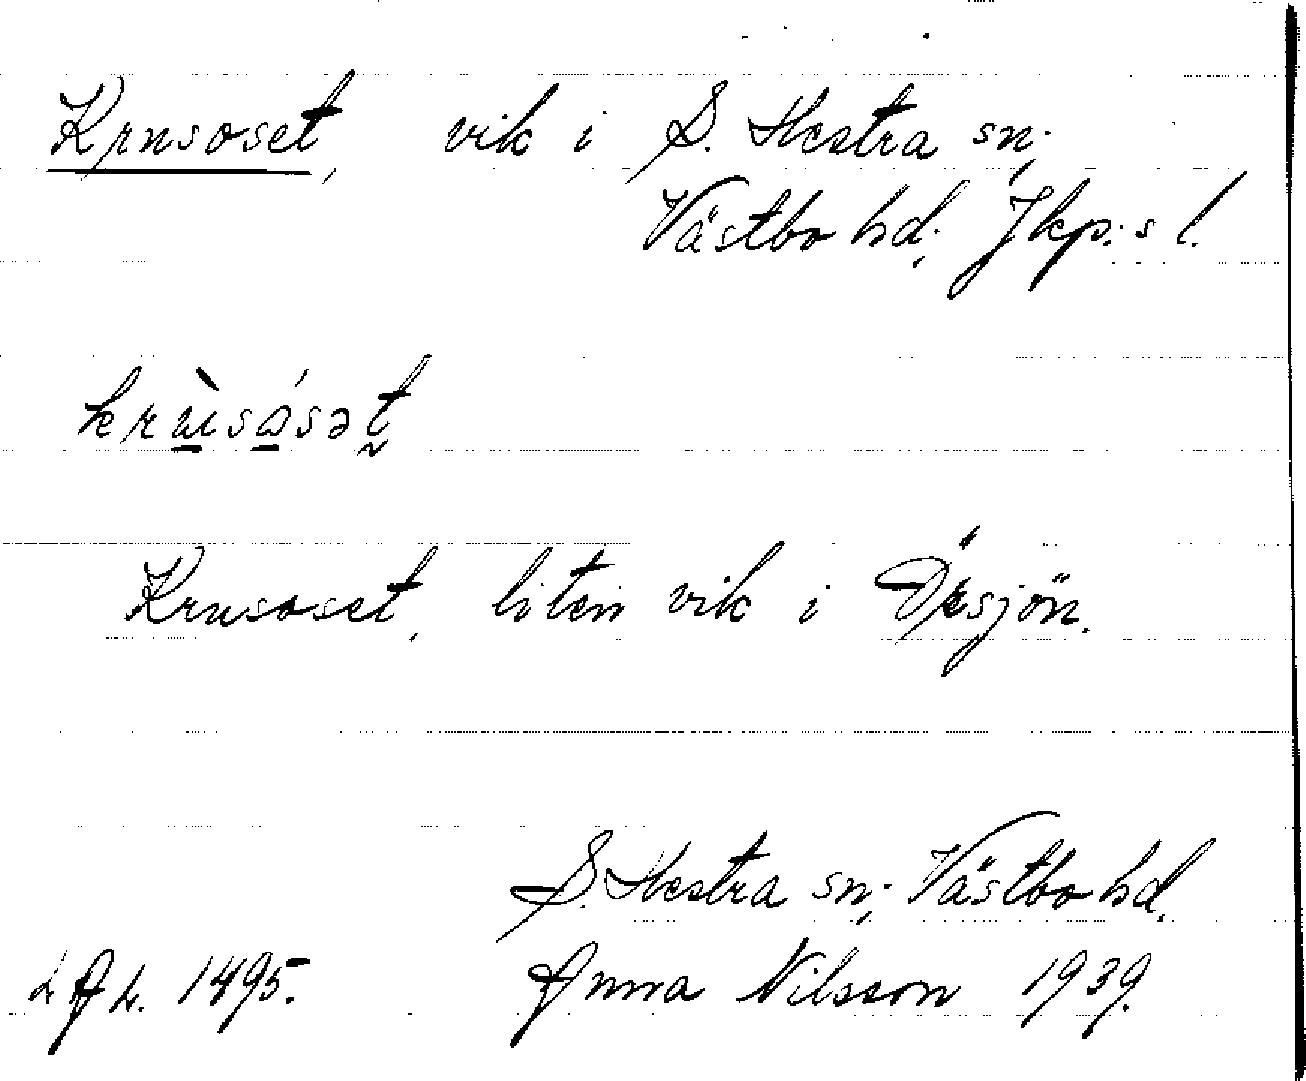 Krusoset, vik i S. Hestra sn;
Västbo hd; Jkp:s l.
krùsósət
Krusoset, liten vik i Örsjön.
S. Hestra sn; Västbo hd.
1495. Anna Nilsson 1939.